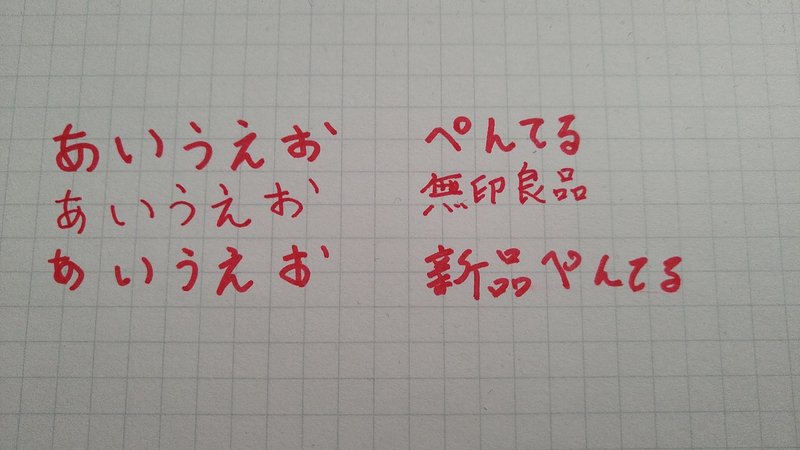 あいうえお ぺんてる
あいうえお 無印良品
あいうえお 新品ぺんてる